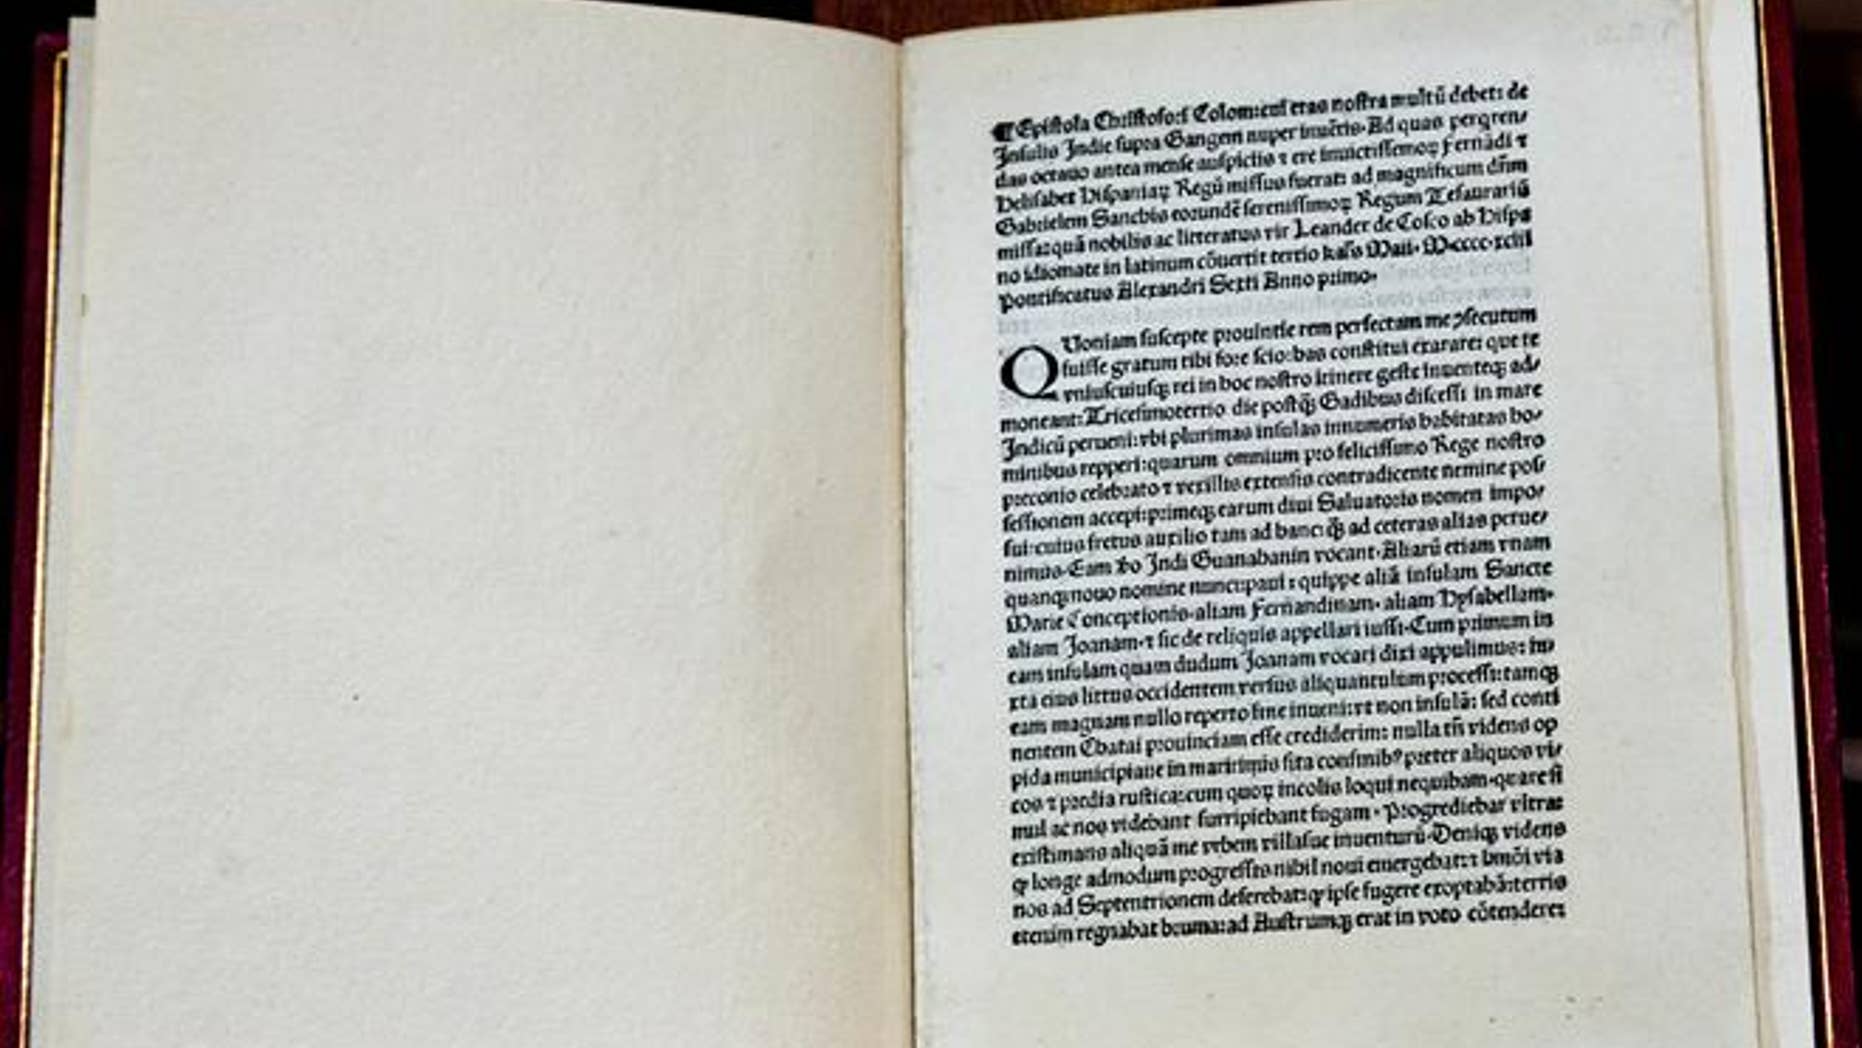 ¶ Epistola Christofori Colom: cui etas nostra multū debet: de
Insulis Indie supra Gangem nuper inuētis. Ad quas perqren⸗
das octauo antea mense auspiciis ⁊ ere inuictissemoꝝ Fernādi ⁊
Helisabet Hispaniaꝝ Regū missus fuerat: ad magnificum dn̄m
Gabrielem Sanchis eorundē serenissimoꝝ Regum Tesaurariū
missa: quā nobilis ac litteratus vir Leander de Cosco ab Hispa
no idiomate in latinum cōuertit tertio kal's Maii. M.cccc.xciii
Pontificatus Alexandri Sexti Anno primo.
QUoniam suscepte prouintie rem perfectam me ꝯsecutum
fuisse gratum tibi fore scio: has constitui exarare: que te
vniuscuiusqꝫ rei in hoc nostro itinere geste inuenteqꝫ ad⸗
moneant: Tricesimotertio die postq̄ꝫ Gadibus discessi in mare
Indicū perueni: vbi plurimas insulas innumeris habitatas ho⸗
minibus repperi: quarum omnium pro felicissimo Rege nostro
preconio celebrato ⁊ vexillis extensis contradicente nemine pos⸗
sessionem accepi: primeqꝫ earum diui Saluatoris nomen impo⸗
sui: cuius fretus auxilio tam ad hanc: q̄ꝫ ad ceteras alias perue⸗
nimus. Eam ꝟo Indi Guanahanin vocant. Aliarū etiam vnam
quanqꝫ nouo nomine nuncupaui: quippe aliā insulam Sancte
Marie Conceptionis. aliam Fernandinam. aliam Hysabellam.
aliam Joanam. ⁊ sic de reliquis appellari iussi. Cum primum in
eam insulam quam dudum Joanam vocari dixi appulimus: iu⸗
xta eius littus occidentem versus aliquantulum processi: tamqꝫ
eam magnam nullo reperto fine inueni: vt non insulā: sed conti
nentem Chatai prouinciam esse crediderim: nulla tn̄ videns op
pida municipiaue in maritimis sita confinibꝰ preter aliquos vi⸗
cos ⁊ predia rustica: cum quoꝝ incolis loqui nequibam. quare si
mul ac nos videbant surripiebant fugam. Progrediebar vltra:
existimans aliquā me vrbem villasue inuenturū. Deniqꝫ videns
ꝙ longe admodum progressis nihil noui emergebat: ⁊ hmōi via
nos ad Septentrionem deferebat: ꝙ ipse fugere exoptabā: terris
etenim regnabat bruma: ad Austrumqꝫ erat in voto cōtendere: